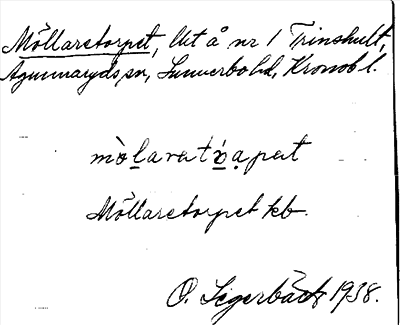 Möllaretorpet, Ut å nr 1 Trinshult,
Agunnaryds sn, Sunnerbo hd, Kronob l.
mòlaratópat
Möllaretorpet kb.
O. Segerbäck 1938.